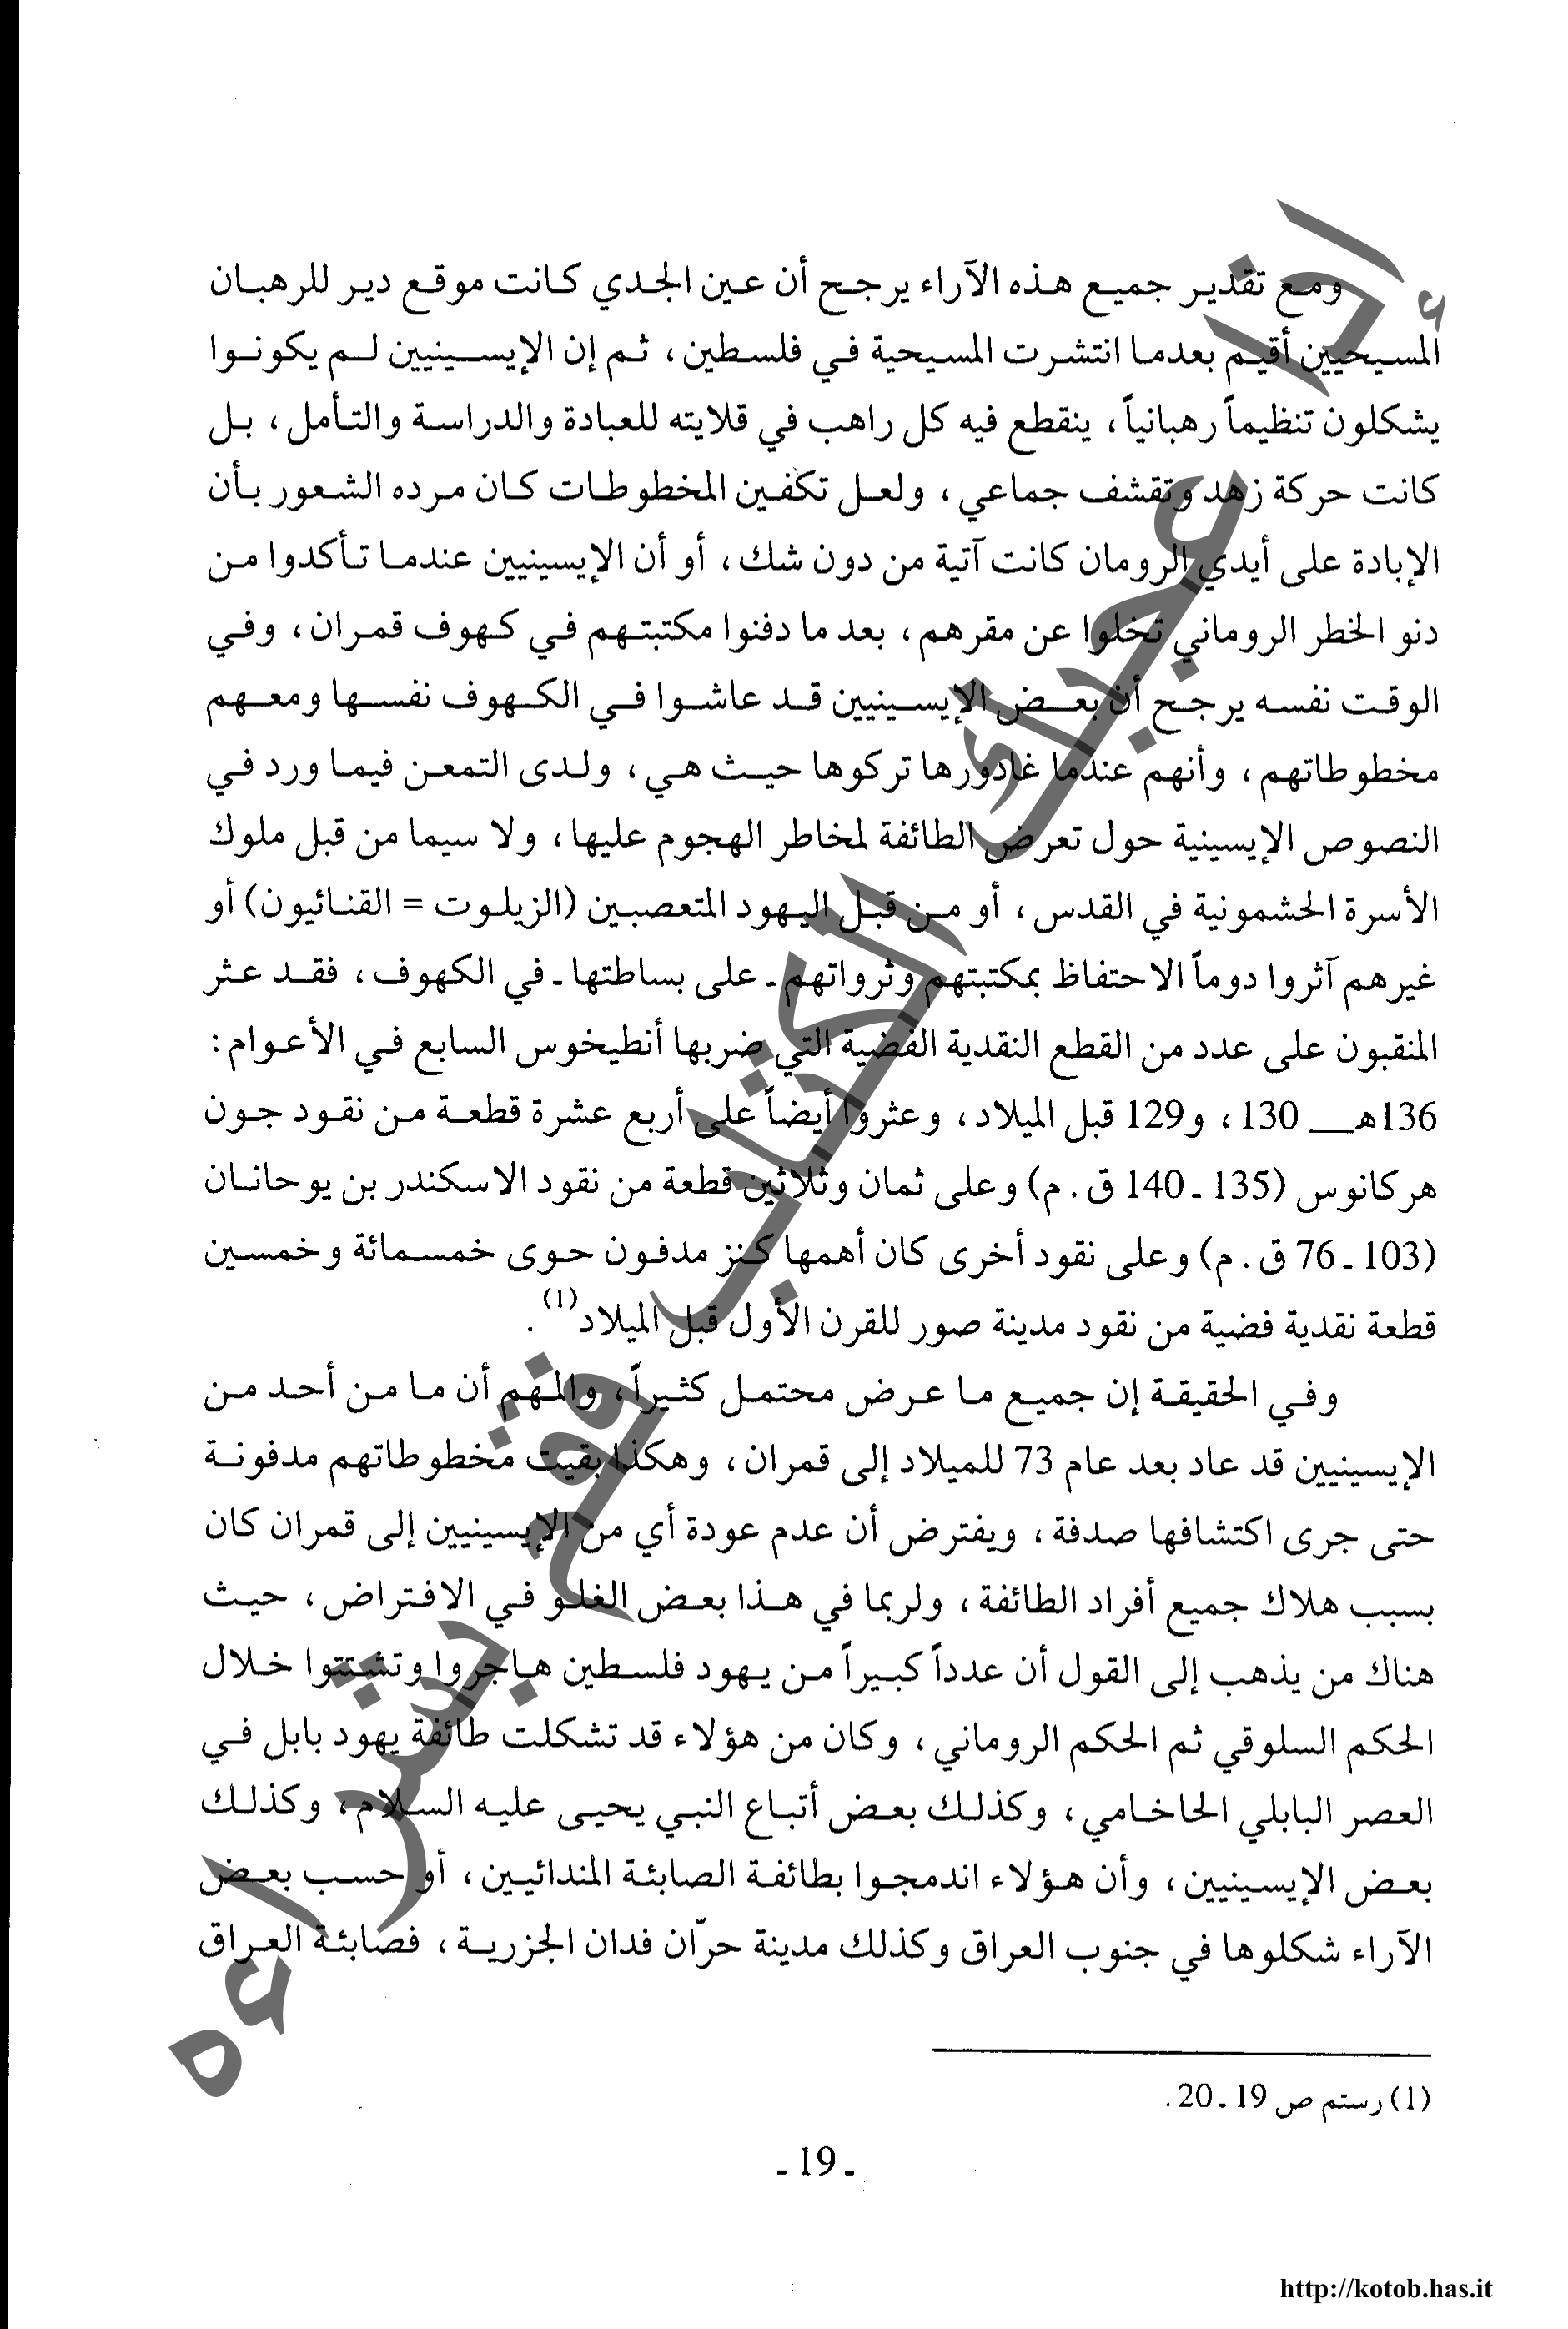 ومع تقدير جميع هذه الآراء يرجح أن عين الجدي كانت موقع دير للرهبان
المسيحيين أقيم بعدما انتشرت المسيحية في فلسطين، ثم إن الإيسينيين لم يكونوا
يشكلون تنظيماً رهبانياً، ينقطع فيه كل راهب في قلايته للعبادة والدراسة والتأمل، بل
كانت حركة زهد وتقشف جماعي، ولعل تكفين المخطوطات كان مرده الشعور بأن
الإبادة على أيدي الرومان كانت آتية من دون شك، أو أن الإيسينيين عندما تأكدوا من
دنو الخطر الروماني تخلوا عن مقرهم، بعد ما دفنوا مكتبتهم في كهوف قمران، وفي
الوقت نفسه يرجح أن بعض الإيسينيين قد عاشوا في الكهوف نفسها ومعهم
مخطوطاتهم، وأنهم عندما غادورها تركوها حيث هي، ولدى التمعن فيما ورد في
النصوص الإيسينية حول تعرض الطائفة لمخاطر الهجوم عليها، ولا سيما من قبل ملوك
الأسرة الحشمونية في القدس، أو من قبل اليهود المتعصبين (الزيلوت = القنائيون) أو
غيرهم آثروا دوماً الاحتفاظ بمكتبتهم وثرواتهم ـ على بساطتها ـ في الكهوف، فقد عثر
المنقبون على عدد من القطع النقدية الفضية التي ضربها أنطيخوس السابع في الأعوام:
136هـ 130، و129 قبل الميلاد، وعثروا أيضاً على أربع عشرة قطعة من نقود جون
هركانوس (135 ـ 140 ق. م) وعلى ثمان وثلاثين قطعة من نقود الاسكندر بن يوحانان
(103 ـ 76 ق. م) وعلى نقود أخرى كان أهمها كنز مدفون حوى خمسمائة وخمسين
قطعة نقدية فضية من نقود مدينة صور للقرن الأول قبل الميلاد(1).
وفي الحقيقة إن جميع ما عرض محتمل كثيراً، والمهم أن ما من أحد من
الإيسينيين قد عاد بعد عام 73 للميلاد إلى قمران، وهكذا بقيت مخطوطاتهم مدفونة
حتى جرى اكتشافها صدفة، ويفترض أن عدم عودة أي من الإيسينيين إلى قمران كان
بسبب هلاك جميع أفراد الطائفة، ولربما في هذا بعض الغلو في الافتراض، حيث
هناك من يذهب إلى القول أن عدداً كبيراً من يهود فلسطين هاجروا وتشتتوا خلال
الحكم السلوقي ثم الحكم الروماني، وكان من هؤلاء قد تشكلت طائفة يهود بابل في
العصر البابلي الحاخامي، وكذلك بعض أتباع النبي يحيى عليه السلام، وكذلك
بعض الإيسينيين، وأن هؤلاء اندمجوا بطائفة الصابئة المندائيين، أو حسب بعض
الآراء شكلوها في جنوب العراق وكذلك مدينة حرّان فدان الجزرية، فصابئة العراق
(1) رستم ص 19 ـ 20.
ـ 19 ـ
إذا أعجبك الكتاب فقم بشراءه
http://kotob.has.it